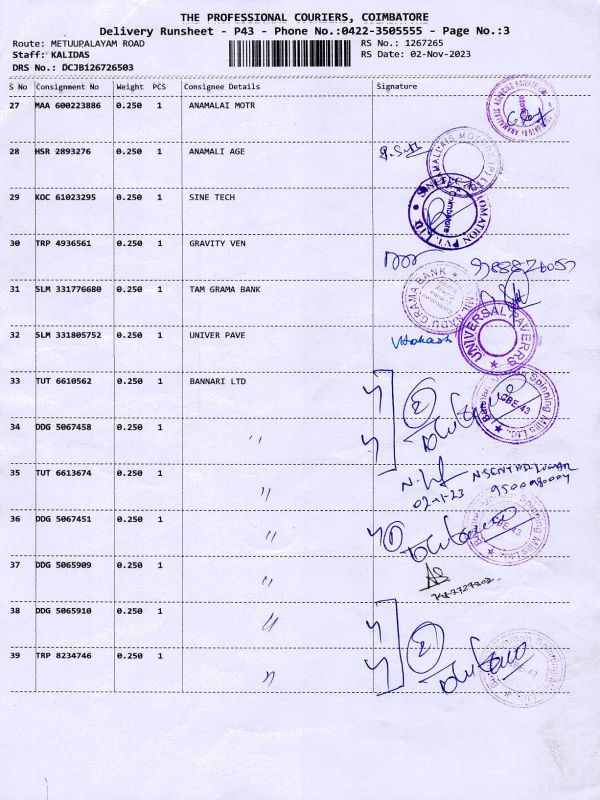 THE PROFESSIONAL COURIERS, COIMBATORE
Delivery Runsheet - P43 - Phone No.:0422-3505555 - Page No.:3
Route: METUUPALAYAM ROAD RS No.: 1267265
Staff: KALIDAS RS Date: 02-Nov-2023
DRS No.: DCJB126726503
S No Consignment No Weight PCS Consignee Details Signature
27 MAA 600223886 0.250 1 ANAMALAI MOTR
28 HSR 2893276 0.250 1 ANAMALI AGE
29 KOC 61023295 0.250 1 SINE TECH
30 TRP 4936561 0.250 1 GRAVITY VEN
31 SLM 331776680 0.250 1 TAM GRAMA BANK
32 SLM 331805752 0.250 1 UNIVER PAVE
UNIVERSAL PAVERRS
33 TUT 6610562 0.250 1 BANNARI LTD
CBE 43
34 DDG 5067458 0.250 1 "
35 TUT 6613674 0.250 1 "
36 DDG 5067451 0.250 1 "
CBE 43
37 DDG 5065909 0.250 1 "
38 DDG 5065910 0.250 1 "
39 TRP 8234746 0.250 1 "
CBE 43